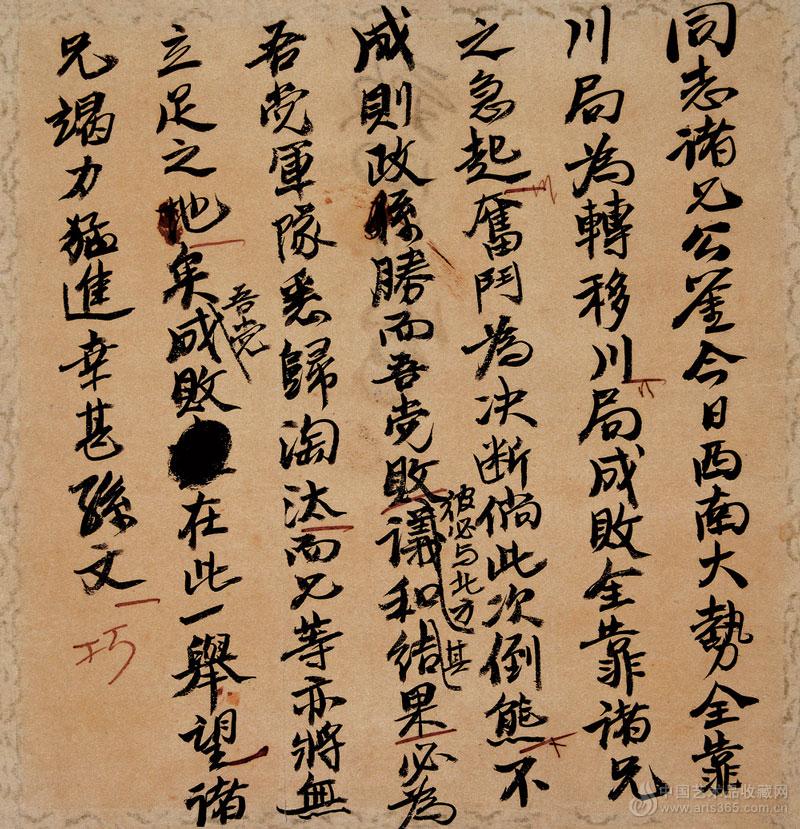 同志诸兄公鉴今日西南大势全靠
川局為轉移川局成敗全靠诸兄
之急起奮鬥為决断倘此次倒熊不
成則政係勝而吾党敗彼必与北方議和其结果必為
吾党軍隊悉歸淘汰而兄等亦將無
立足之地矣吾党成敗在此一舉望诸
兄竭力猛進幸甚孫文
巧
中国艺术品收藏网
www.arts365.com.cn